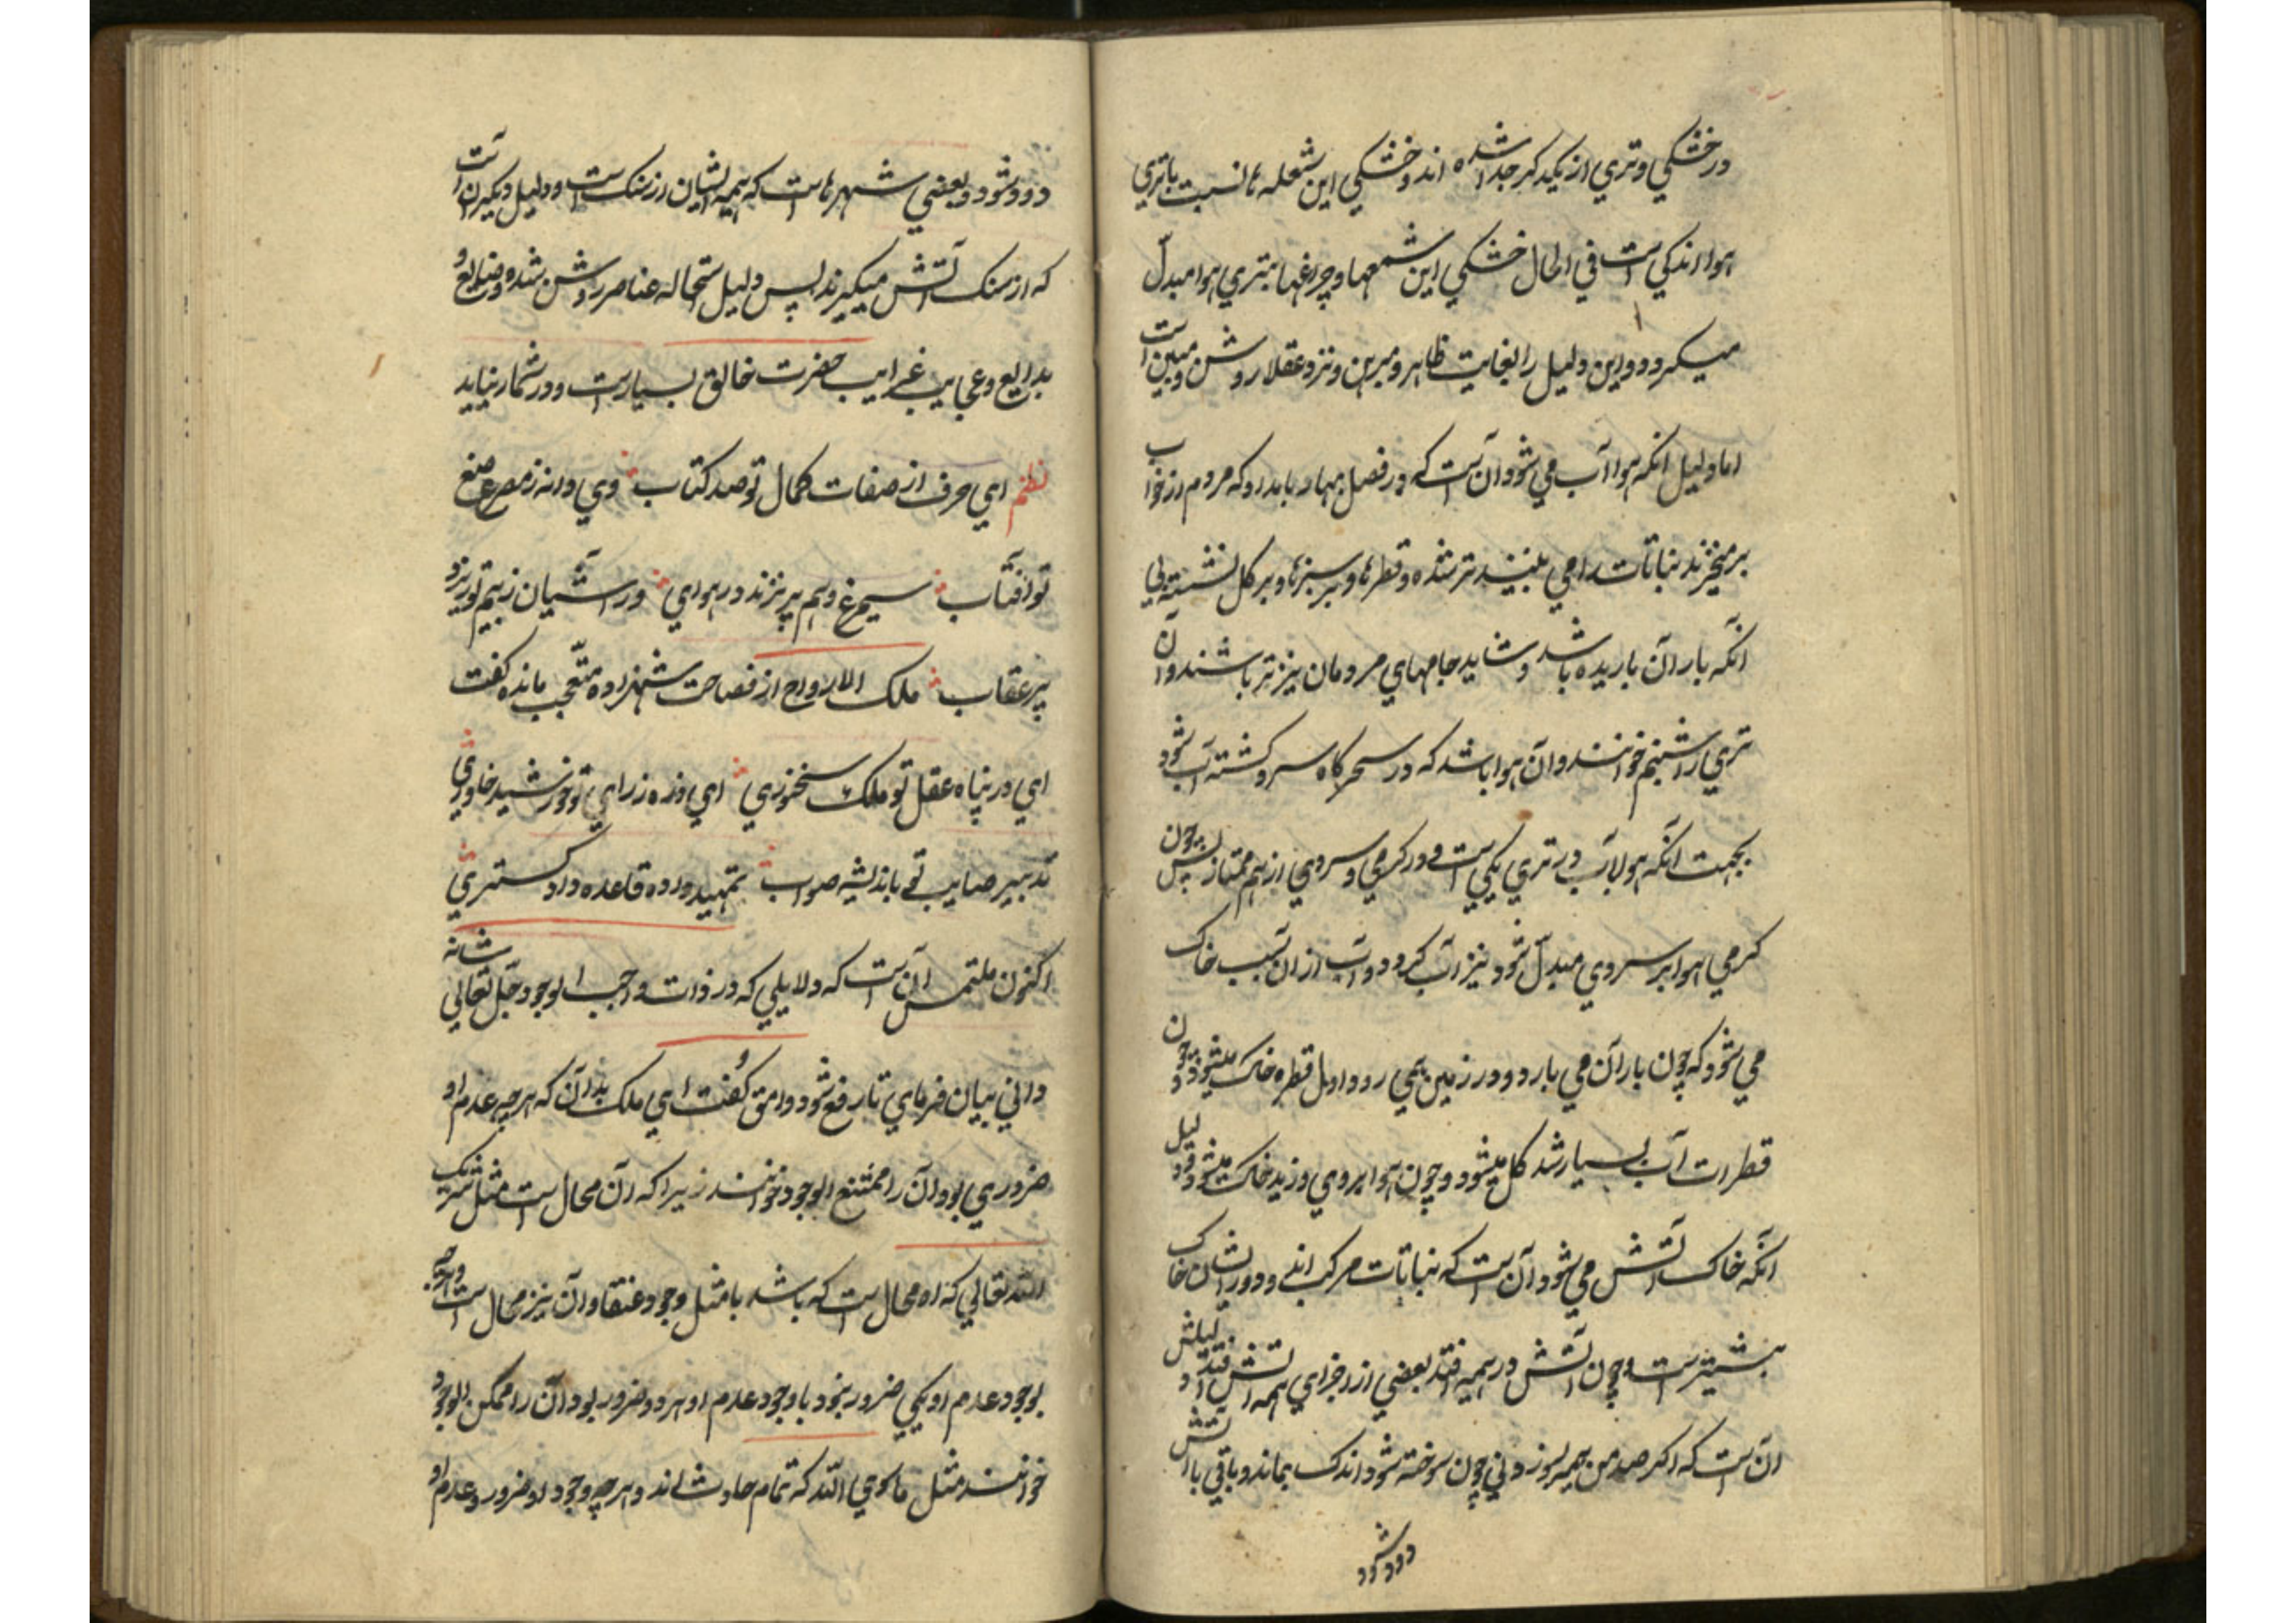 در خشکي و تري از يکديکر جدا شده اند و خشکي اين شعله ها نسبت با تري
هوا اندکي است في الحال خشکي اين شمعها و چراغها بتري هوا مبدّل
ميکردد و اين دليل را بغايت ظاهر و مبرهن و نزد عقلا روشن و مبين است
اما دليل آنکه هوا آب مي شود آن آنست که در فصل بهار بامداد که مردم از خواب
برميخيزند نباتات را مي بينند تر شده و قطرها بر سبزها و بر کل نشسته بي
آنکه باران باريده باشد و شايد جامهاي مردمان نيز تر باشند و آن
تري را شبنم خوانند و آن هوا باشد که در سحرکاه سرد کشته آب شود
بجهت آنکه هوا با آب در تري يکي است و در کرمي و سردي از هم ممتاز پس چون
کرمي هوا بر سردي مبدّل شود نيز آب کردد و آب از ان سبب خاک
مي شود که چون باران مي بارد و در زمين مي رود اول قطره خاک ميشود و چون
قطرات آب بسيار شد کل ميشود و چون هوا بروي وزيد خاک ميشود و دليل
آنکه خاک آتش مي شود آن است که نباتات مرکب اند و در ايشان خاک
بيشتر است و چون آتش در هيمه افتد بعضي از اجزاي هيمه آتش کردد و دليلش
آن است که اکر صد من هيمه بسوزد و ني چون سوخته شود اندک بماند و باقي با آتش
دود شود
دود شود و بعضي شهرهاست که هيمه ايشان از سنک است و دليل ديکر آن است
که از سنک آتش ميکيرند پس دليل استحاله عناصر روشن شده و صنايع و
بدايع و عجايب غرايب حضرت خالق بسيارست و در شمار نيايد
نظم اي حرف از صفات کمال تو صد کتاب وي دانه ز مصرع صنع
تو آفتاب سيمرغ وهم پر نزند در هواي در آشيان ز بيم تو ريزد
پر عقاب ملک الارواح از فصاحت شهزاده متعجب مانده کفت
اي در پناه عقل تو ملک سخنوري اي ذره ز راي تو خورشيد خاوري
تدبير صايب تو باندشيه صواب تمهيد داده قاعده داد کستري
اکنون ملتمس آن است که دلايلي که در ذات واجب الوجود جلّ تعالي شانه
داني بيان فرماي تا رفع شود وامق کفت اي ملک بدان که هر چه عدم او
ضروري بود آن را ممتنع الوجود خوانند زيرا که آن محال است مثل شريک
الله تعالي که اه محال است که باشد يا مثل وجود عنقا و آن نيز محال است و هر چه
بوجود عدم او يکي ضرور نبود يا وجود عدم او هر دو ضرور بود آن را ممکن الوجود
خوانند مثل ماسوي الله که تمام حادث اند و هر چه وجود او ضرور و عدم او